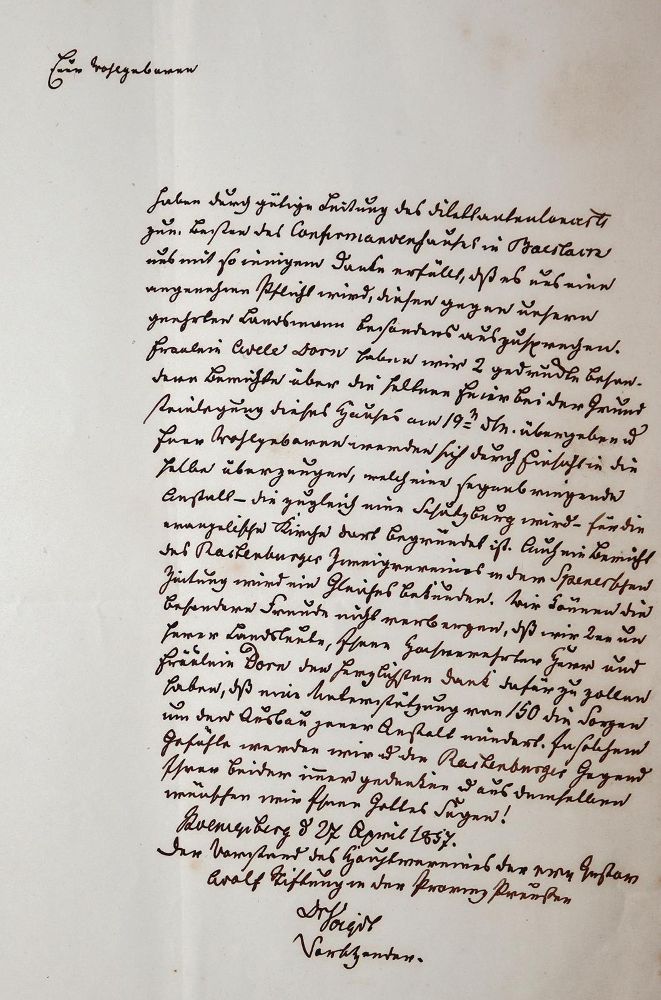 Euer Wohlgeboren
haben durch gütige Leitung des Dilettantenconcerts
zum Besten des Confirmandenhauses in
uns mit so innigem Danke erfüllt, daß es uns eine
angenehme Pflicht wird, diesen gegen unsern
geehrten Landsmann besonders auszusprechen.
Fräulein Adele Dorn haben wir 2 gedruckte beson-
dere Berichte über die seltene Feier bei der Grund
steinlegung dieses Hauses am 19n dM. übergeben &
Euer Wohlgeboren werden sich durch Einsicht in die
selbe überzeugen, welch eine segenbringende
Anstalt – die zugleich eine Schutzburg wird – für die
evangelische Kirche dort begründet ist. Auch ein Bericht
des Rastenburger Zweigvereines in der Spenerschen
Zeitung wird ein Gleiches bekunden. Wir können die
besondere Freude nicht verbergen, daß wir un
serer Landsleute, Ihnen Hochverehrter Herr und
Fräulein Dorn den herzlichsten Dank dafür zu zollen
haben, daß eine Unterstützung von 150 die Sorgen
um den Ausbau jener Anstalt mindert. In solchem
Gefühle werden wir & die Rastenburger Gegend
Ihrer beider immer gedenken & aus demselben
wünschen wir Ihnen Gottes Segen!
Koenigsberg d 27 April 1857.
Der Vorstand des Hauptvereines der Gustav
Adolf Stiftung in der Provinz Preußen
Dr Voigdt
Vorsitzender.